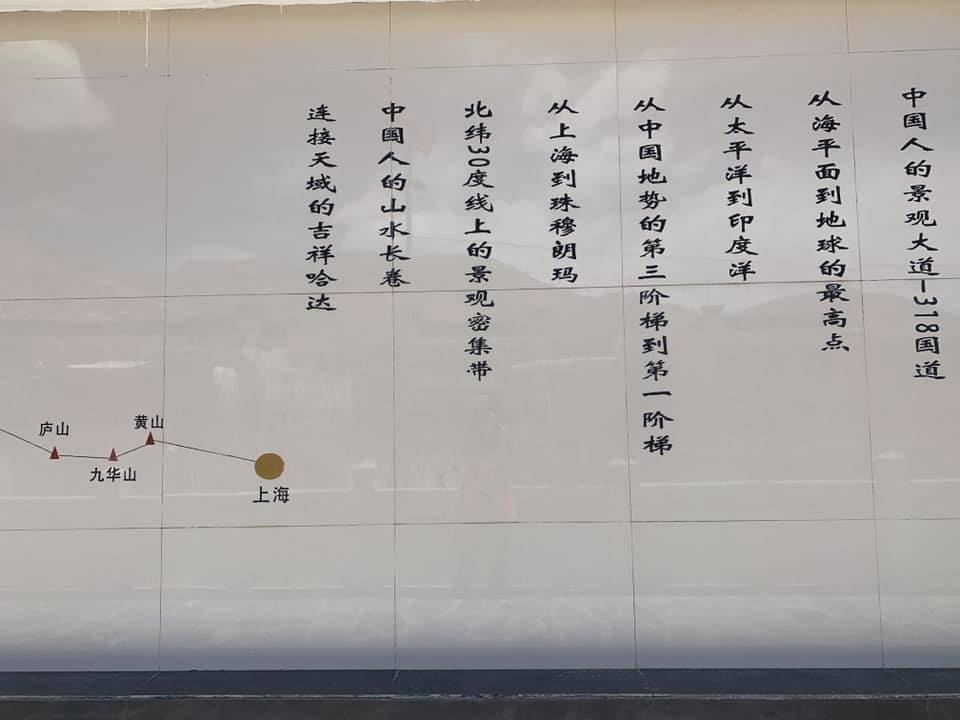 中国人的景观大道-318国道
从海平面到地球的最高点
从太平洋到印度洋
从中国地势的第三阶梯到第一阶梯
从上海到珠穆朗玛
北纬30度线上的景观密集带
中国人的山水长卷
连接天域的吉祥哈达
庐山
九华山
黄山
上海